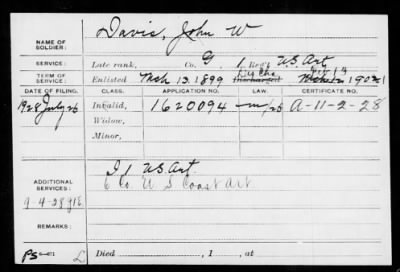 NAME OF SOLDIER: Davis, John W
SERVICE: Late rank, Co. G 1 Reg't U.S. Art
Dis Cha
TERM OF SERVICE: Enlisted Mch 13 1899 1902
DATE OF FILING. CLASS. APPLICATION NO. LAW. CERTIFICATE NO.
1928 July 26 Invalid, 1620094 A-11-2-28
Widow,
Minor,
I 1 U.S. Art.
ADDITIONAL SERVICES: 6 Co. U S Coast Art
9-4-28
REMARKS:
Died , 1 , at